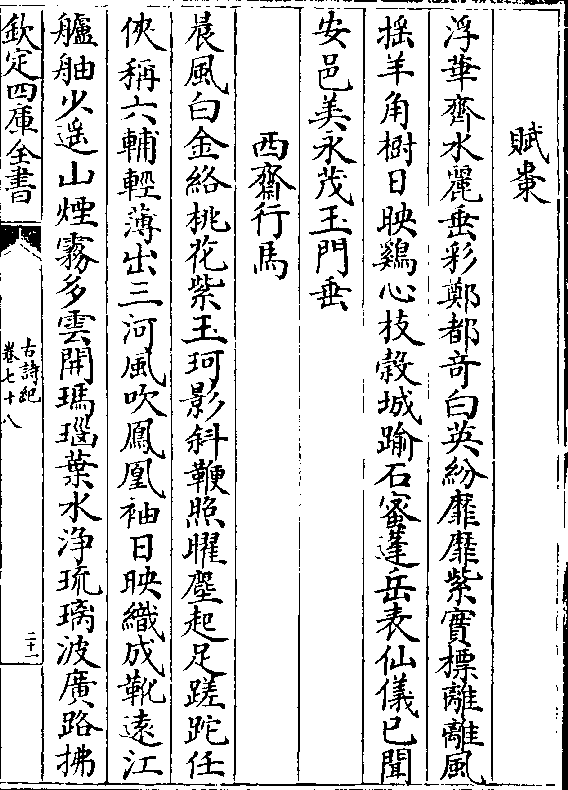 賦棗
浮華齊水麗垂彩鄭都竒白英紛靡靡紫實標離離風
揺羊角樹日映雞心枝穀城踰石蜜蓬岳表仙儀已聞
安邑美永茂玉門垂
西齋行馬
晨風白金絡桃花紫玉珂影斜鞭照曜塵起足蹉跎任
俠稱六輔輕薄出三河風吹鳳凰袖日映織成靴逺江
艫舳少遥山煙霧多雲開瑪瑙葉水浄琉璃波廣路拂
欽定四庫全書
古詩紀
卷七十八
二十一